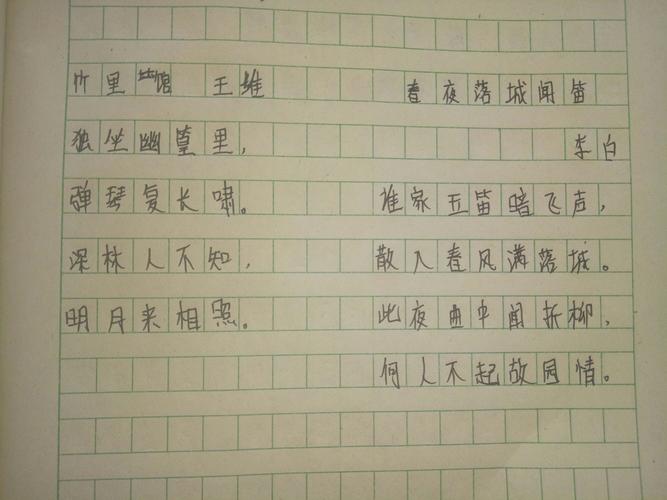 竹里馆 王维
独坐幽篁里，
弹琴复长啸。
深林人不知，
明月来相照。
春夜落城闻笛
李白
谁家五笛暗飞声，
散入春风满落城。
此夜曲中闻折柳，
何人不起故园情。